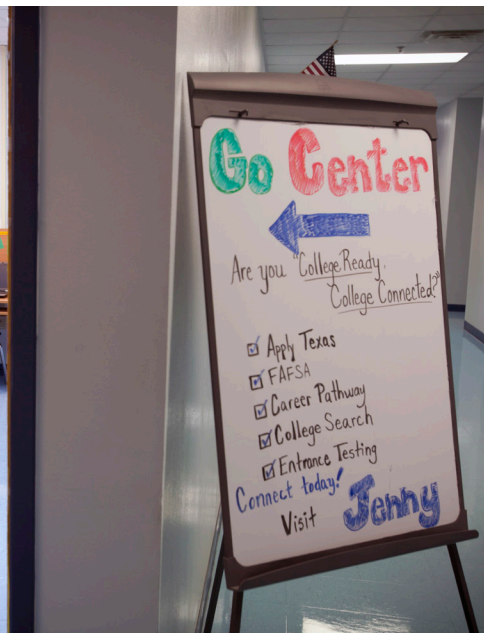 Go Center
Are you "College Ready,
College Connected?"
Apply Texas
FAFSA
Career Pathway
College Search
Entrance Testing
Connect today!
Visit Jenny